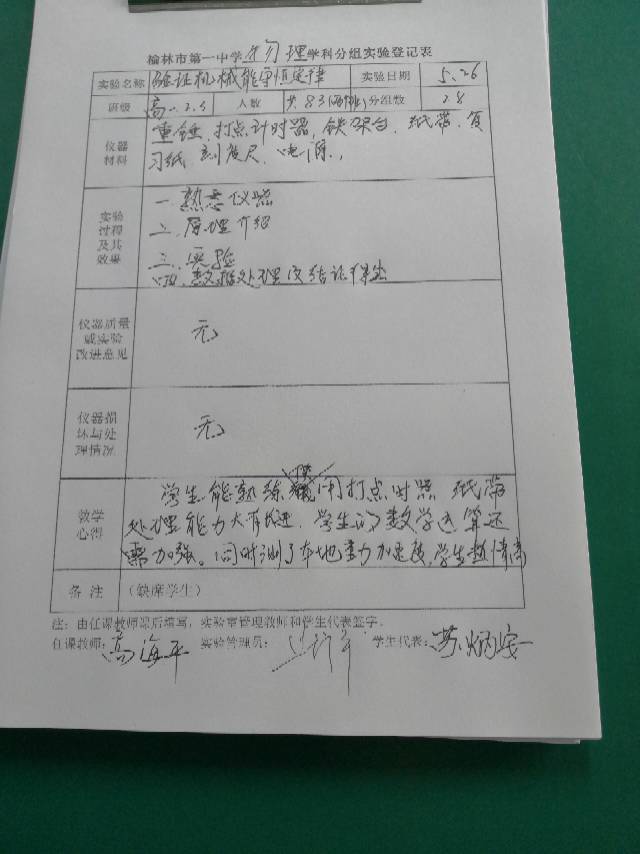 榆林市第一中学物理学科分组实验登记表
实验名称 验证机械能守恒定律 实验日期 5.26
班级 高一.2.3 人数 共83(两班) 分组数 28
仪器材料 重锤、打点计时器、铁架台、纸带、复
习纸、刻度尺、电源、
实验过程及其效果 一.熟悉仪器
二.原理介绍
三.实验
四.数据处理及结论得出
仪器质量或实验改进意见 无
仪器损坏与处理情况 无
教学心得 学生能熟练使用打点时器 纸带
处理能力大有长进,学生的数学运算还
需加强。同时测了本地重力加速度,学生热情高
备注 (缺席学生)
注:由任课教师课后填写,实验室管理教师和学生代表签字。
任课教师:高海平 实验管理员: 学生代表:苏炳宏